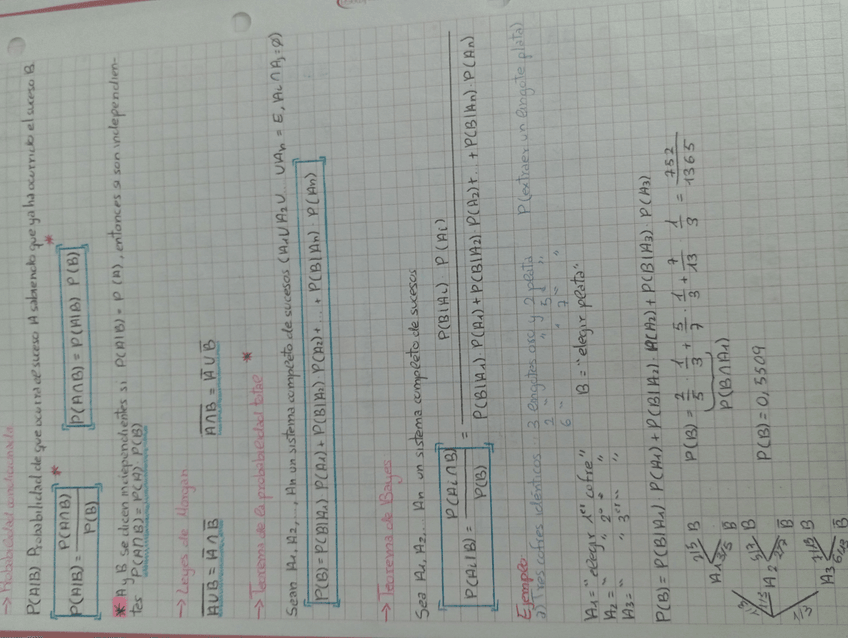 → Probabilidad condicionada
P(A|B) Probabilidad de que ocurra el suceso A sabiendo que ya ha ocurrido el suceso B
[P(A|B) = P(A∩B) / P(B)] * [P(A∩B) = P(A|B) P(B)] *
* A y B se dicen independientes si P(A|B) = P(A), entonces si son independien-
tes P(A∩B) = P(A) P(B)
→ Leyes de Morgan
A̅U̅B̅ = A̅ ∩ B̅ A̅∩̅B̅ = A̅ U B̅
→ Teorema de la probabilidad total *
Sean A1, A2, ..., An un sistema completo de sucesos (A1 U A2 U ... U An = E, Ai ∩ Aj = ∅)
[P(B) = P(B|A1) P(A1) + P(B|A2) P(A2) + ... + P(B|An) · P(An)]
→ Teorema de Bayes
Sea A1, A2, ... An un sistema completo de sucesos
[P(Ai|B) = P(Ai∩B) / P(B)] = P(B|Ai) · P(Ai) / P(B|A1) · P(A1) + P(B|A2) · P(A2) + ... + P(B|An) · P(An)
Ejemplo:
2) Tres cofres idénticos ... 3 lingotes oro y 2 plata P(extraer un lingote plata)
2 " " 5 "
6 " " 7 " "
A1 = "elegir 1er cofre" B = "elegir plata"
A2 = " " 2º "
A3 = " " 3er "
P(B) = P(B|A1) P(A1) + P(B|A2) · P(A2) + P(B|A3) · P(A3)
P(B) = 2/5 · 1/3 + 5/7 · 1/3 + 7/13 · 1/3 = 752/1365
P(B∩A1)
P(B) = 0,5509
1/3 A1 2/5 B
3/5 B̅
1/3 A2 5/7 B
2/7 B̅
1/3 A3 7/13 B
6/13 B̅